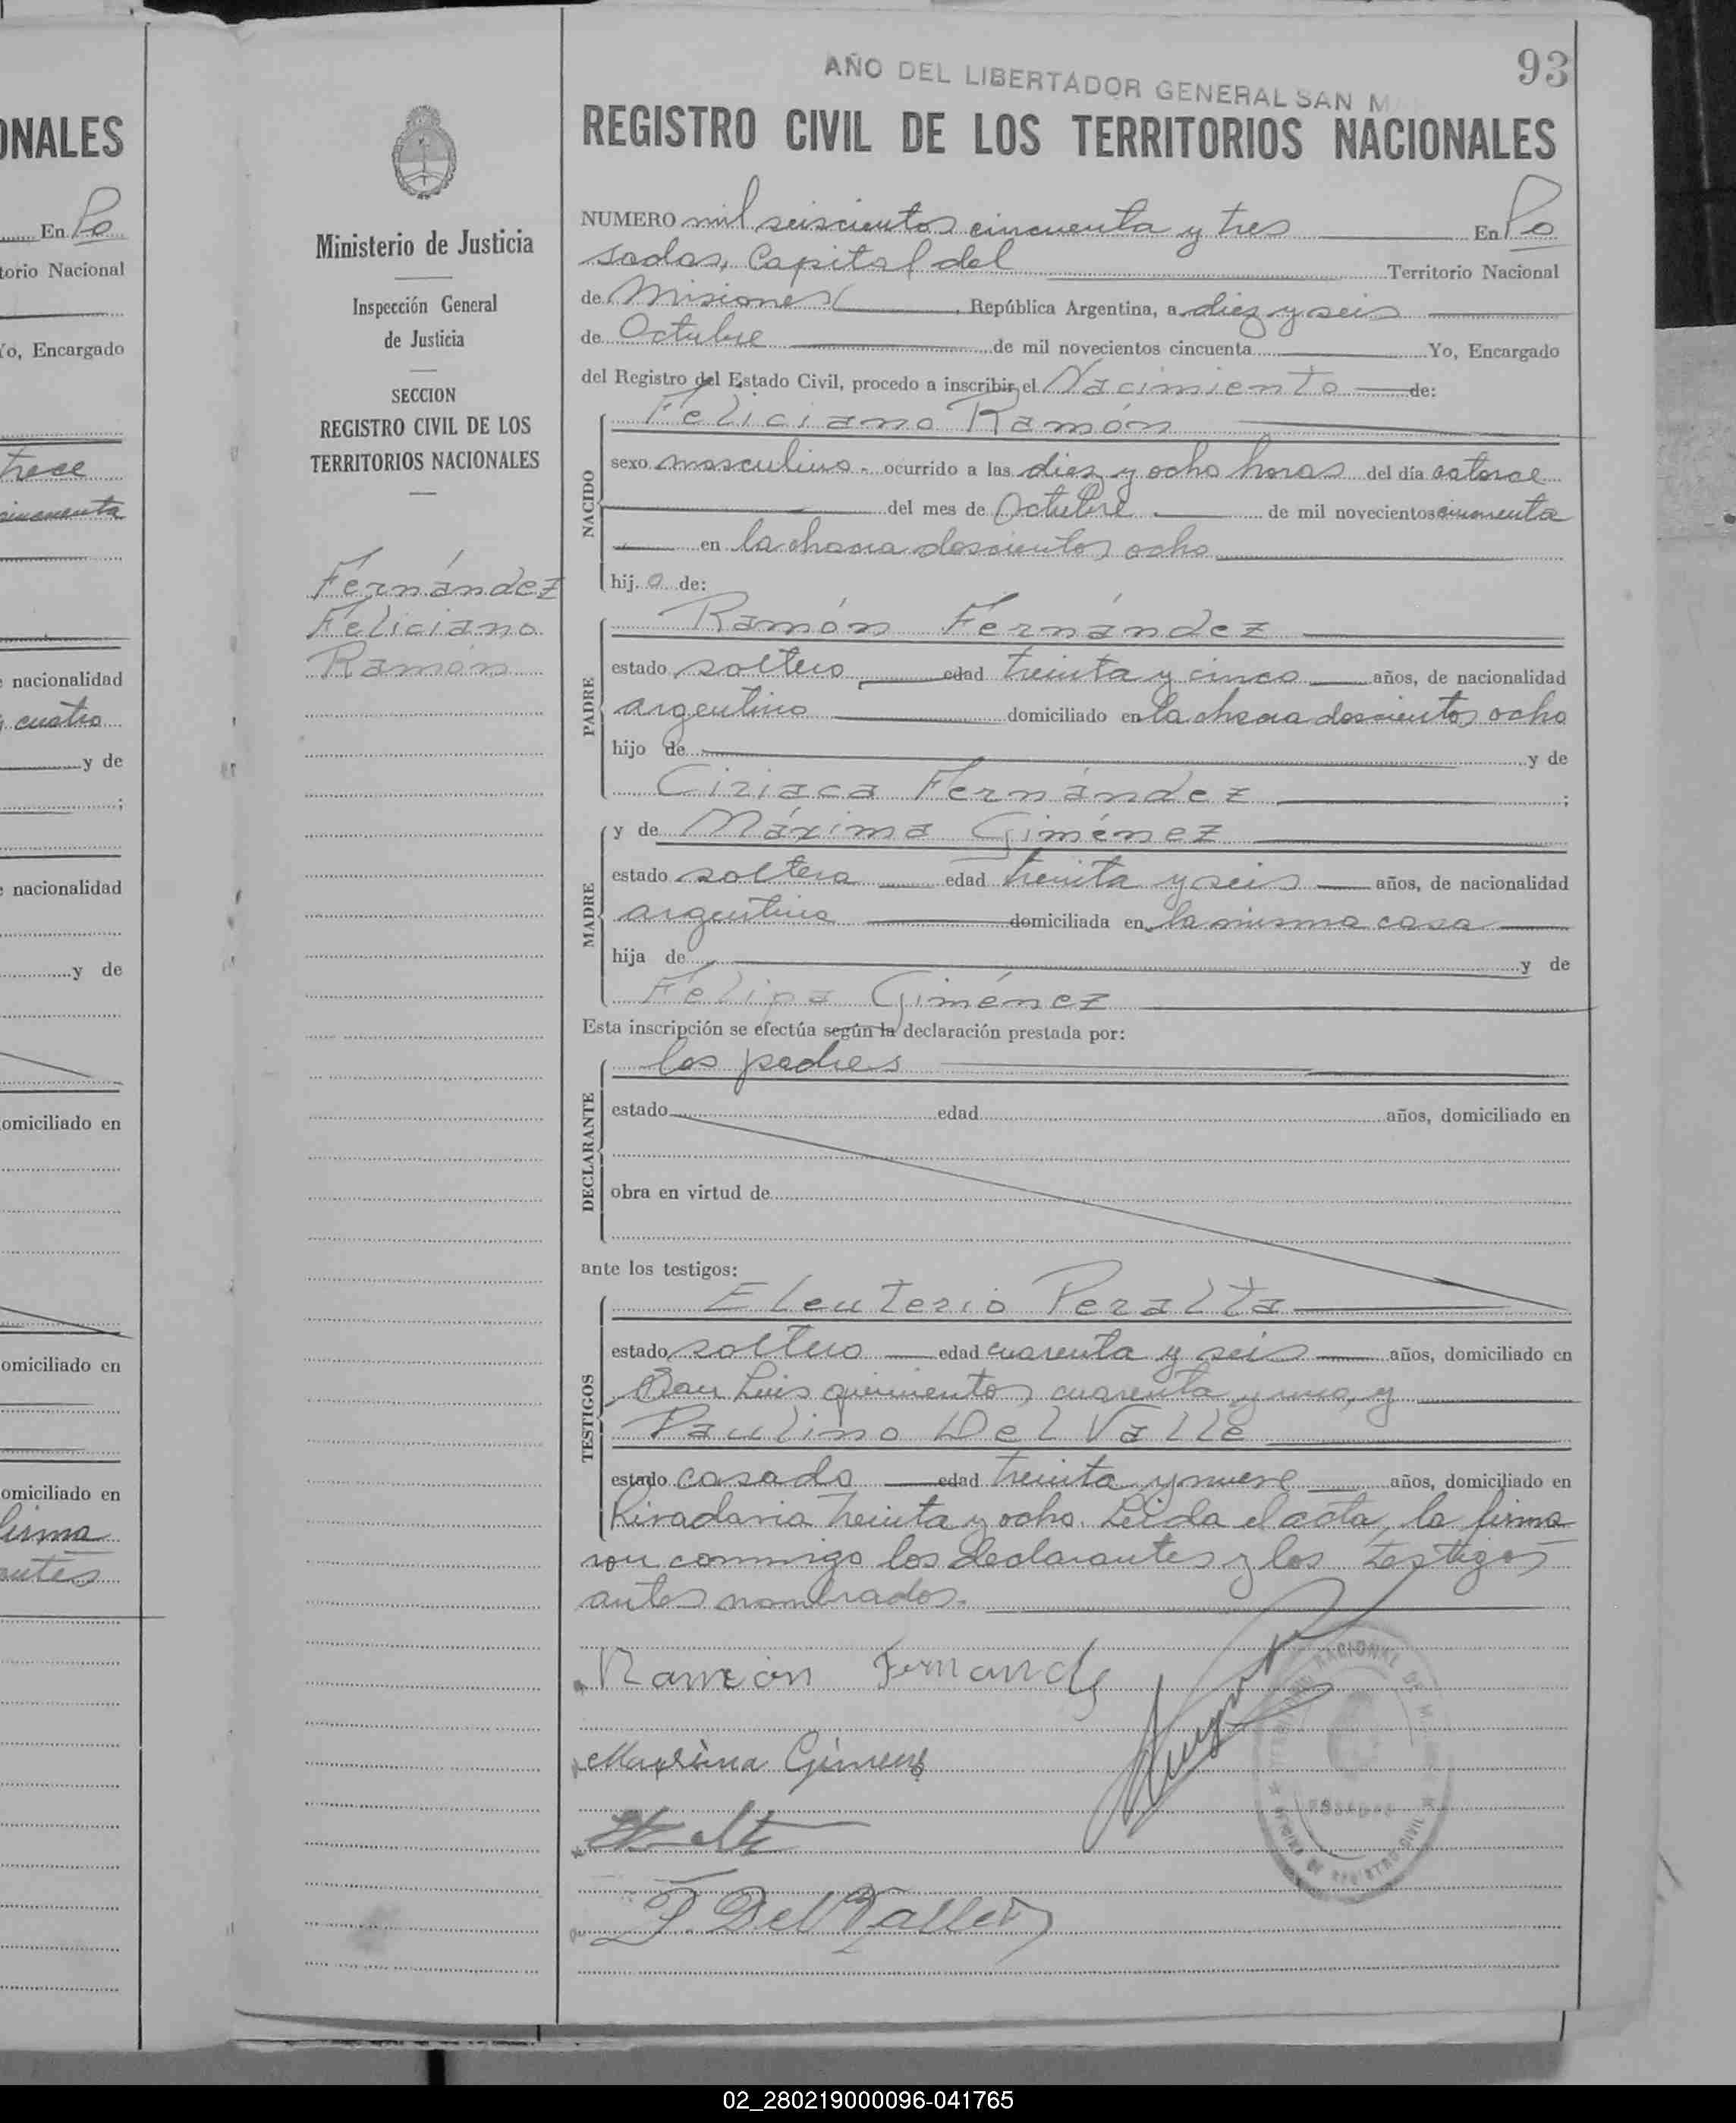 ONALES
En Po
torio Nacional
Yo, Encargado
trece
cincuenta
e nacionalidad
y cuatro
y de
;
e nacionalidad
y de
omiciliado en
omiciliado en
omiciliado en
firma
antes
Ministerio de Justicia
Inspección General
de Justicia
SECCION
REGISTRO CIVIL DE LOS
TERRITORIOS NACIONALES
Fernández
Feliciano
Ramón
93
AÑO DEL LIBERTADOR GENERAL SAN MA
REGISTRO CIVIL DE LOS TERRITORIOS NACIONALES
NUMERO mil seiscientos cincuenta y tres En Po
sadas, Capital del Territorio Nacional
de Misiones, República Argentina, a diez y seis
de Octubre de mil novecientos cincuenta Yo, Encargado
del Registro del Estado Civil, procedo a inscribir el Nacimiento de:
NACIDO
Feliciano Ramón
sexo masculino - ocurrido a las diez y ocho horas del día catorce
del mes de Octubre de mil novecientos cincuenta
en la chacra doscientos ocho
hij o de:
PADRE
Ramón Fernández
estado soltero edad treinta y cinco años, de nacionalidad
argentino domiciliado en la chacra doscientos ocho
hijo de y de
Ciriaca Fernández ;
MADRE
y de Máxima Giménez
estado soltera edad treinta y seis años, de nacionalidad
argentina domiciliada en la misma casa
hija de y de
Felipa Giménez
Esta inscripción se efectúa según la declaración prestada por:
DECLARANTE
los padres
estado edad años, domiciliado en
obra en virtud de
ante los testigos:
TESTIGOS
Eleuterio Peralta
estado soltero edad cuarenta y seis años, domiciliado en
San Luis quinientos cuarenta y uno, y
Paulino Del Valle
estado casado edad treinta y nueve años, domiciliado en
Rivadavia treinta y ocho. Leída el acta, la firma
ron conmigo los declarantes y los testigos
antes nombrados.
Ramón Fernandez
Maxima Gimenez
P. Del Valle
NACIONAL DE
POSADAS
OFICINA DE REGISTRO CIVIL
02_280219000096-041765